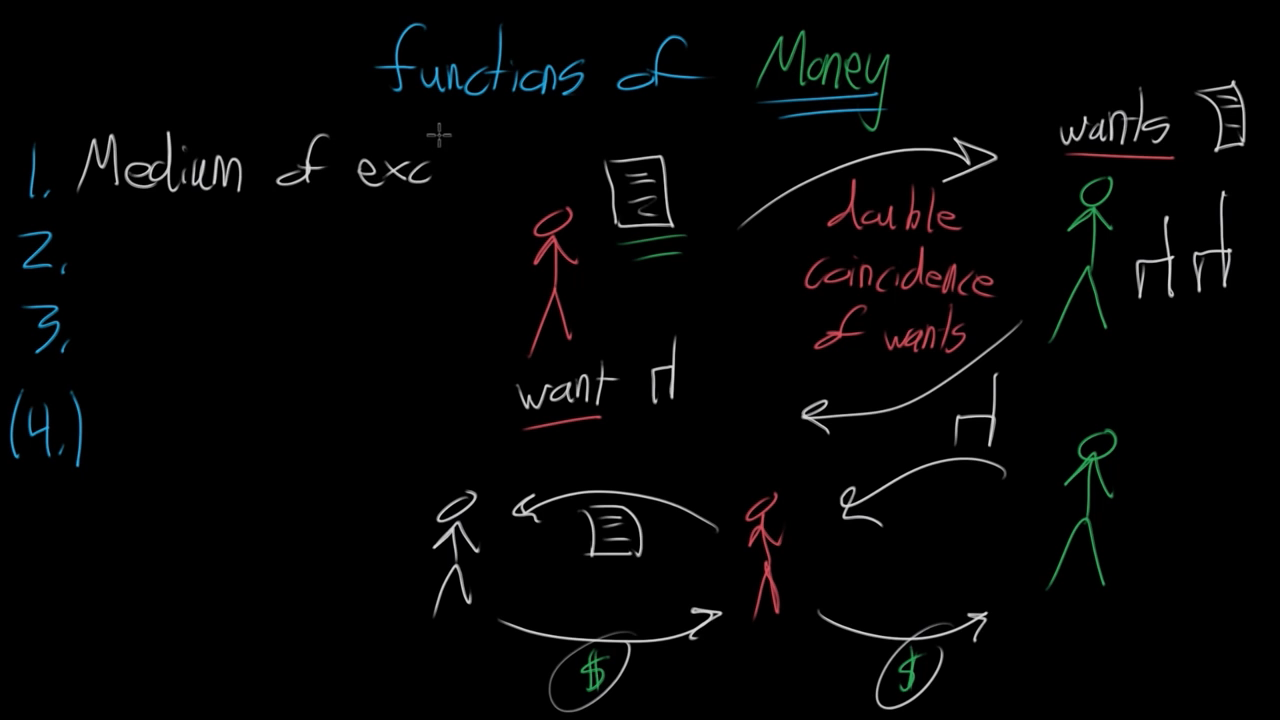 functions of Money
1. Medium of exc
2.
3.
(4.)
wants
double
coincidence
of wants
want
$
$